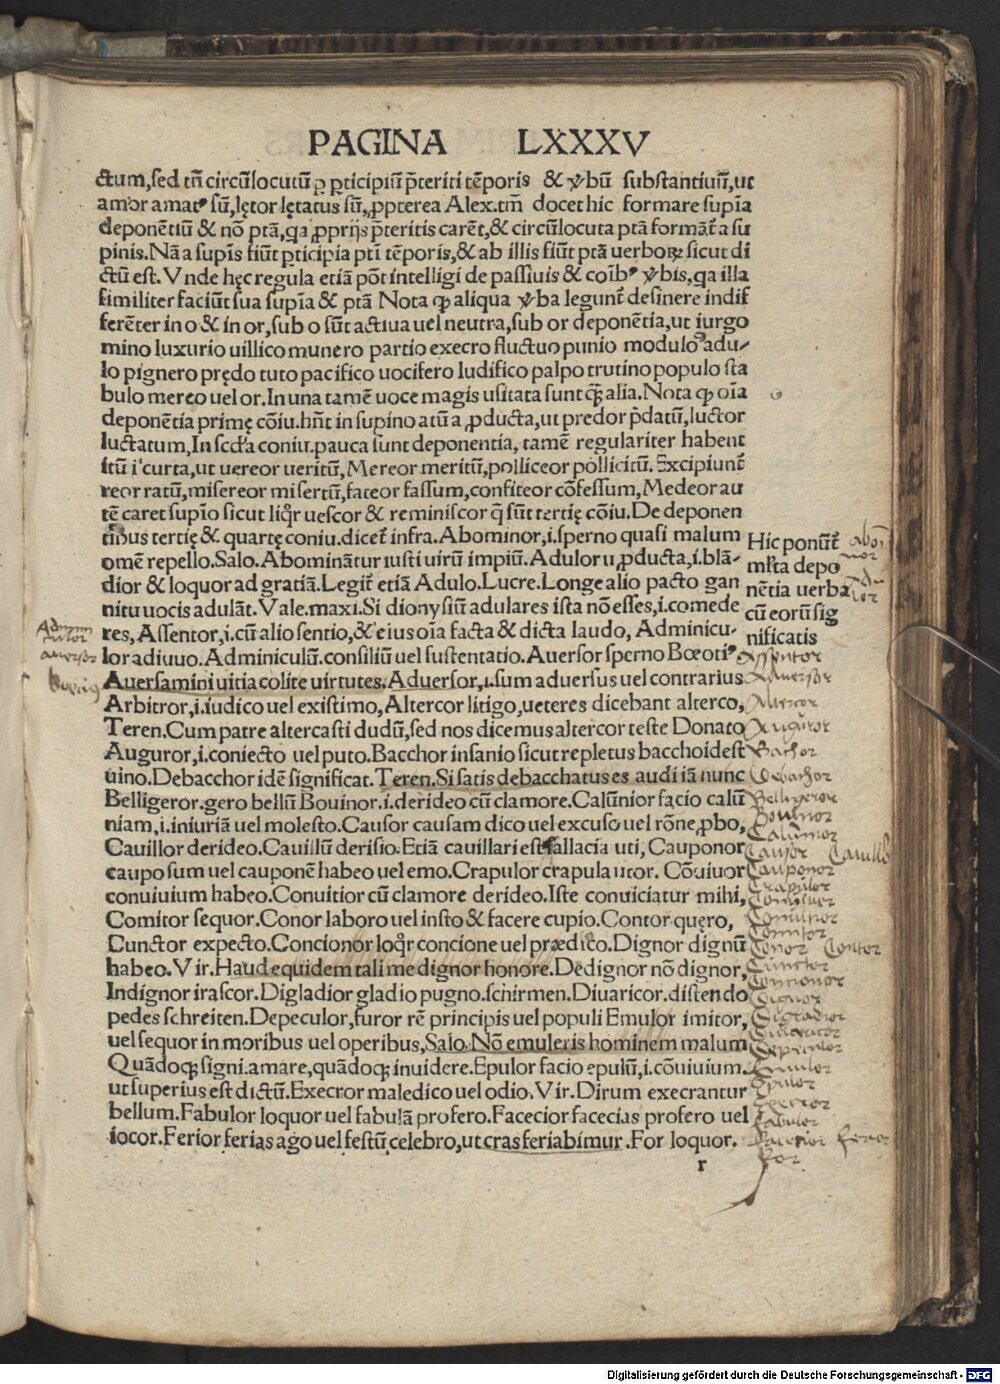 PAGINA LXXXV
ctum,sed tñ circũlocutũ ꝑ pticipiũ p̃teriti tẽporis & ỽbũ substantiuũ,ut
amor amatꝰ sũ,lętor lętatus sũ,ꝓpterea Alex.tm̃ docet hic formare supĩa
deponẽtiũ & nõ ptã,qa ꝓprijs p̃teritis carẽt,& circũlocuta ptã formãt̃ a su
pinis.Nã a supĩs fiũt pticipia pti tẽporis,& ab illis fiũt ptã uerboꝝ sicut di
ctũ est.Vnde hęc regula etiã põt intelligi de passiuis & coĩbꝰ ỽbis,qa illa
similiter faciũt sua supĩa & ptã Nota ꝙ aliqua ỽba legunt̃ desinere indif
ferẽter in o & in or,sub o sũt actiua uel neutra,sub or deponẽtia,ut iurgo
mino luxurio uillico munero partio execro fluctuo punio modulo adu-
lo pignero prędo tuto pacifico uocifero ludifico palpo trutino populo sta
bulo mereo uel or.In una tamẽ uoce magis usitata sunt q̃ȝ alia.Nota ꝙ oĩa
deponẽtia primę cõiu.hñt in supino atũ a ꝓducta,ut predor p̃datũ,luctor
luctatum,In scd̃a coniu.pauca sunt deponentia, tamẽ regulariter habent
itũ i curta,ut uereor ueritũ,Mereor meritũ,polliceor pollicitũ.Excipiunt̃
reor ratũ,misereor misertũ,fateor fassum,confiteor cõfessum,Medeor au
tẽ caret supĩo sicut liq̃r uescor & reminiscor q̃ sũt tertię cõiu.De deponen
tibus tertię & quartę coniu.dicet̃ infra.Abominor,i.sperno quasi malum
omẽ repello.Salo.Abominãtur iusti uirũ impiũ.Adulor u ꝓducta,i.blã-
dior & loquor ad gratiã.Legit̃ etiã Adulo.Lucre.Longe alio pacto gan
nitu uocis adulãt.Vale.maxi.Si dionysiũ adulares ista nõ esses,i.comede
res, Assentor,i.cũ alio sentio,& eius oĩa facta & dicta laudo, Adminicu-
lor adiuuo.Adminiculũ.consiliũ uel sustentatio.Auersor sperno Bœotiꝰ
Auersamini uitia colite uirtutes.Aduersor,i.sum aduersus uel contrarius
Arbitror,i.iudico uel existimo,Altercor litigo,ueteres dicebant alterco,
Teren.Cum patre altercasti dudũ,sed nos dicemus altercor teste Donato
Auguror,i.coniecto uel puto.Bacchor insanio sicut repletus baccho idest
uino.Debacchor idẽ significat.Teren.Si satis debacchatus es audi iã nunc
Belligeror.gero bellũ Bouinor.i.derideo cũ clamore.Calũnior facio calũ
niam,i.iniuriã uel molesto.Causor causam dico uel excuso uel rõne ꝓbo,
Cauillor derideo.Cauillũ derisio.Etiã cauillari est fallacia uti, Cauponor
caupo sum uel cauponẽ habeo uel emo.Crapulor crapula utor. Cõuiuor
conuiuium habeo.Conuitior cũ clamore derideo.Iste conuiciatur mihi,
Comitor sequor.Conor laboro uel insto & facere cupio.Contor quęro,
Cunctor expecto.Concionor loq̃r concione uel prædico.Dignor dignũ
habeo.Vir.Haud equidem tali me dignor honore.Dedignor nõ dignor,
Indignor irascor.Digladior gladio pugno.schirmen.Diuaricor.distendo
pedes schreiten.Depeculor,furor rẽ principis uel populi Emulor imitor,
uel sequor in moribus uel operibus,Salo.Nõ emuleris hominem malum
Quãdoqȝ signi.amare,quãdoqȝ inuidere.Epulor facio epulũ,i.cõuiuium.
ut superius est dictũ.Execror maledico uel odio.Vir.Dirum execrantur
bellum.Fabulor loquor uel fabulã profero.Facecior facecias profero uel
iocor.Ferior ferias ago uel festũ celebro,ut cras feriabimur .For loquor.
r
Hic ponũt̃
ml̃ta depo
nẽtia uerba
cũ eorũ sig
nificatis
Assentor
Aduersor
Altercor
Auguror
Bachor
Debachor
Belligeror
Bouinor
Calũnior
Causor Cauillo
Cauponor
Crapulor
Comitor
Conor Contor
Cunctor
Concionor
Dignor
Digladior
Depeculor
Emulor
Epulor
Execror
Fabulor
Facecior Ferior
For
Admini
culor
Auersor
Digitalisierung gefördert durch die Deutsche Forschungsgemeinschaft - DFG